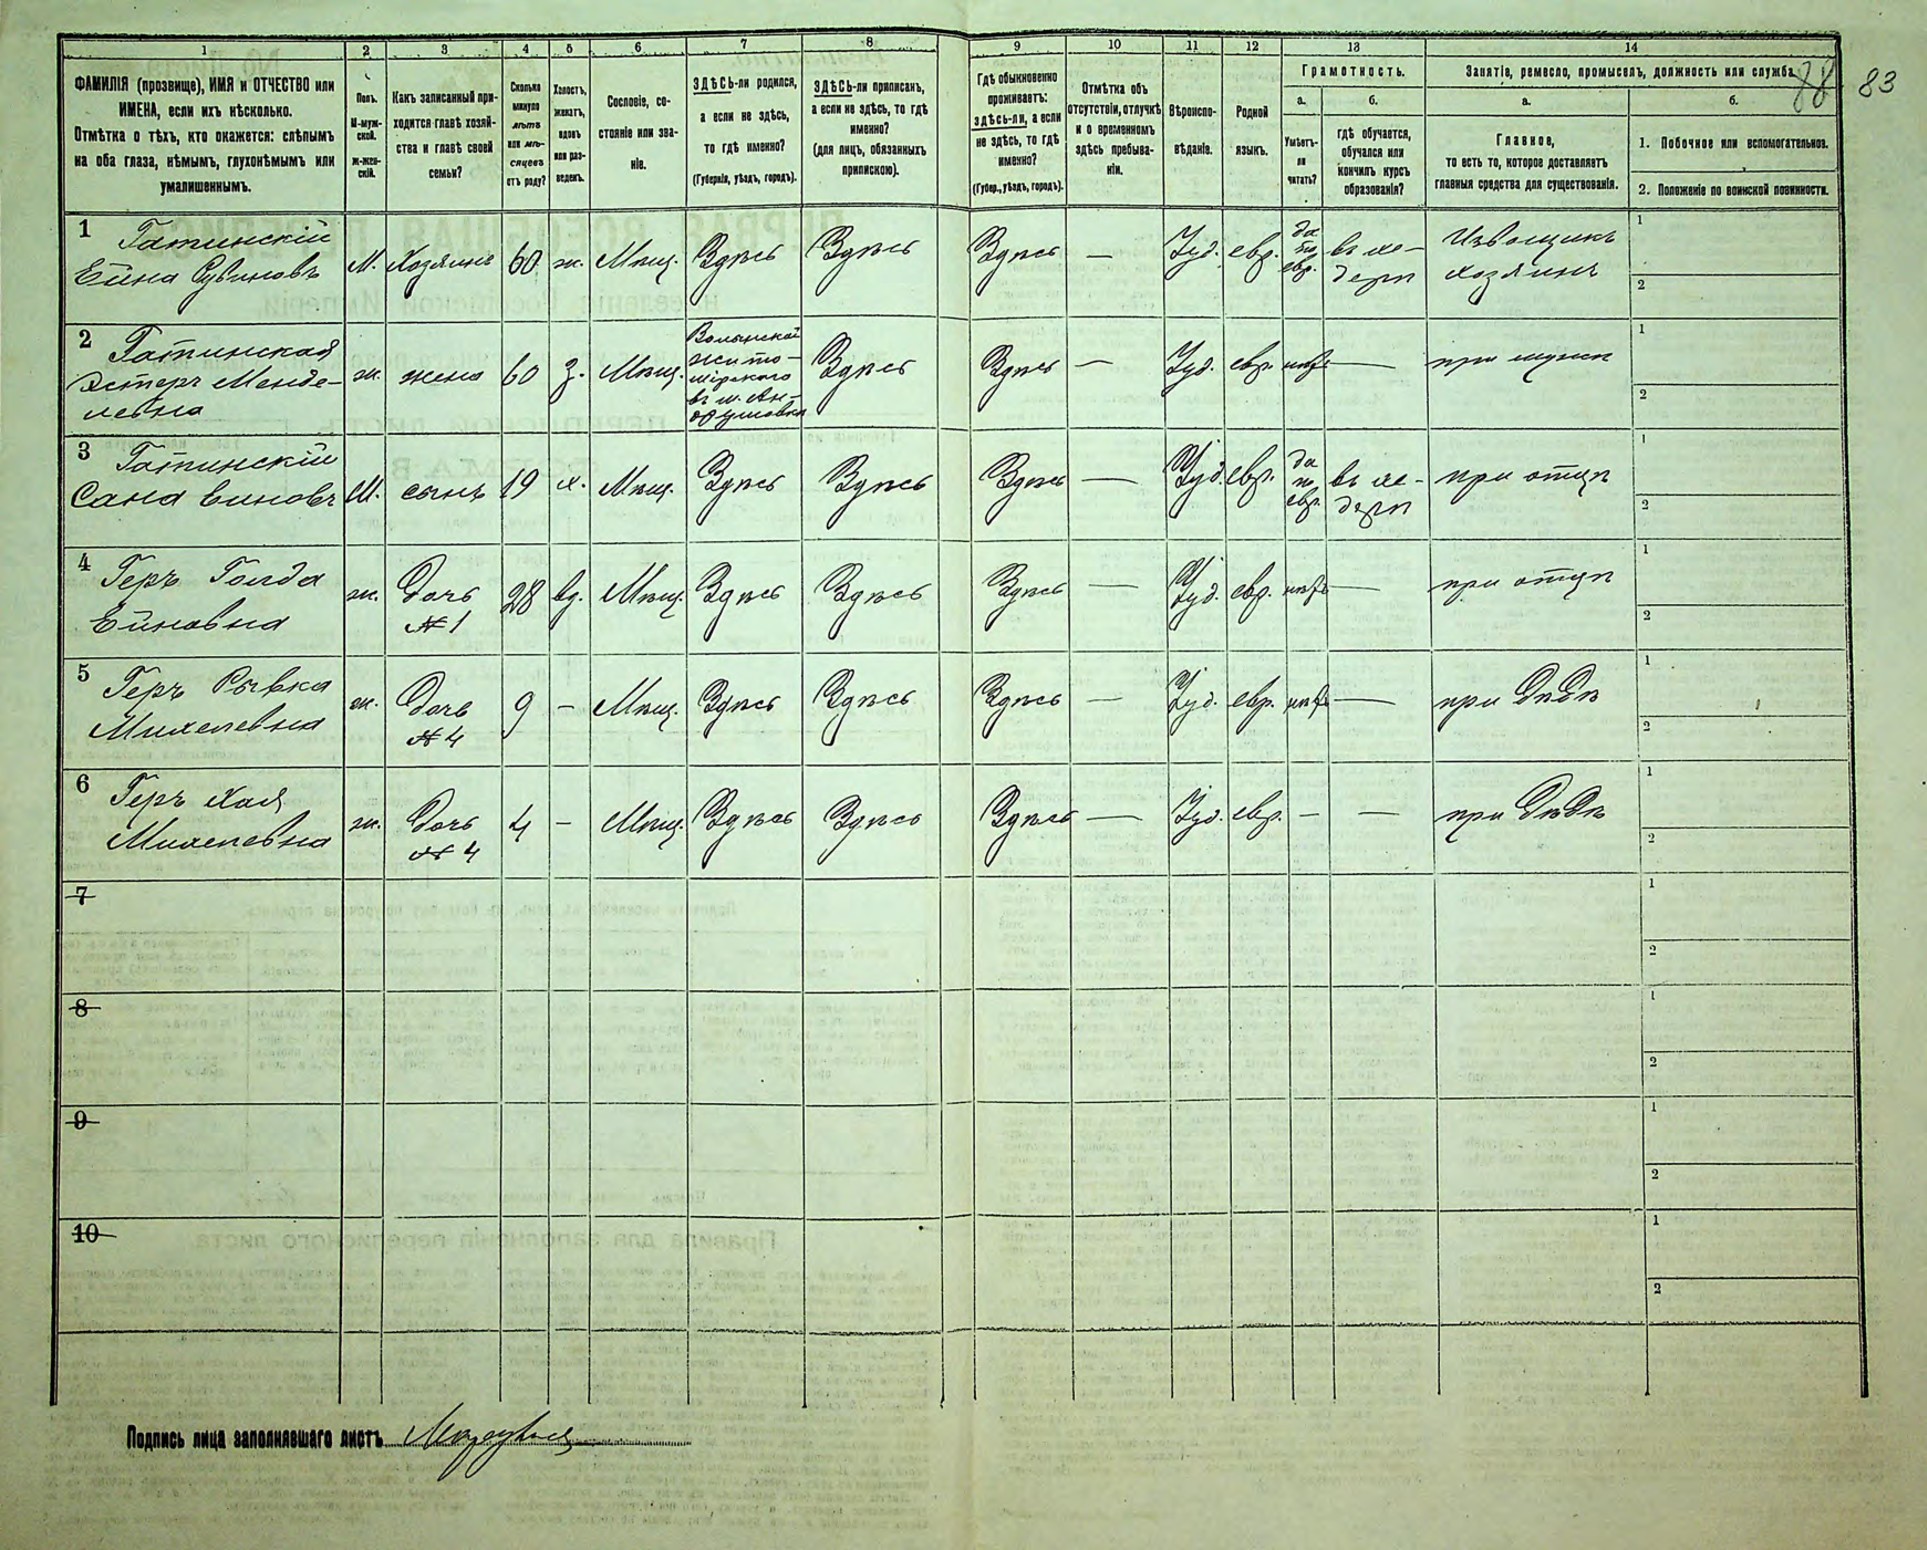 1 2 3 4 5 6 7 8 9 10 11 12 13 14
83
ФАМИЛІЯ (прозвище), ИМЯ и ОТЧЕСТВО или
ИМЕНА, если ихъ нѣсколько.
Отмѣтка о тѣхъ, кто окажется: слѣпымъ
на оба глаза, нѣмымъ, глухонѣмымъ или
умалишеннымъ.
Полъ.
М-муж-
ской.
ж-жен-
скій.
Какъ записанный при-
ходится главѣ хозяй-
ства и главѣ своей
семьи?
Сколько
минуло
лѣтъ
или мѣ-
сяцевъ
отъ роду?
Холостъ,
женатъ,
вдовъ
или раз-
веденъ.
Сословіе, со-
стояніе или зва-
ніе.
ЗДѢСЬ-ли родился,
а если не здѣсь,
то гдѣ именно?
(Губернія, уѣздъ, городъ).
ЗДѢСЬ-ли приписанъ,
а если не здѣсь, то гдѣ
именно?
(для лицъ, обязанныхъ
припискою).
Гдѣ обыкновенно
проживаетъ:
здѣсь-ли, а если
не здѣсь, то гдѣ
именно?
(Губер., уѣздъ, городъ).
Отмѣтка объ
отсутствіи, отлучкѣ
и о временномъ
здѣсь пребыва-
ніи.
Вѣроиспо-
вѣданіе.
Родной
языкъ.
Грамотность.
а.
Умѣетъ-
ли
читать?
б.
гдѣ обучается,
обучался или
кончилъ курсъ
образованія?
Занятіе, ремесло, промыселъ, должность или служба.
а.
Главное,
то есть то, которое доставляетъ
главныя средства для существованія.
б.
1. Побочное или вспомогательное.
2. Положеніе по воинской повинности.
1 Гатинскій
Ейна Сувиновъ
М. Хозяинъ 60 ж. Мѣщ. Здѣсь Здѣсь Здѣсь — Іуд. евр.
да
по
евр.
въ хе-
дерѣ
Извощикъ
хозяинъ
1
2
2 Гатинская
Эстеръ Менде-
левна
ж. жена 60 з. Мѣщ.
Волынской
жито-
мірскаго
въ м. Ан-
друшовка
Здѣсь Здѣсь — Іуд. евр. нѣтъ — при мужѣ
1
2
3 Гатинскій
Сана Еиновъ
М. сынъ 19 х. Мѣщ. Здѣсь Здѣсь Здѣсь — Іуд. евр.
да
по
евр.
въ хе-
дерѣ
при отцѣ
1
2
4 Геръ Голда
Ейновна
ж. Дочь
№ 1
28 вд. Мѣщ. Здѣсь Здѣсь Здѣсь — Іуд. евр. нѣтъ — при отцѣ
1
2
5 Геръ Рывка
Михелевна
ж. Дочь
№ 4
9 — Мѣщ. Здѣсь Здѣсь Здѣсь — Іуд. евр. нѣтъ — при Дѣдѣ
1
2
6 Геръ Хая
Михелевна
ж. Дочь
№ 4
4 — Мѣщ. Здѣсь Здѣсь Здѣсь — Іуд. евр. — — при Дѣдѣ
1
2
7
1
2
8
1
2
9
1
2
10
1
2
Подпись лица заполнявшаго листъ